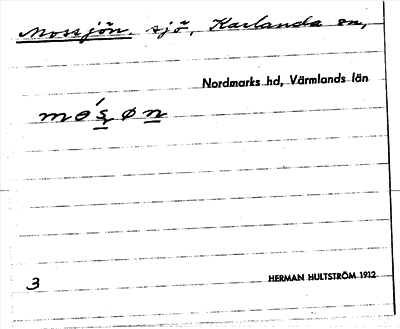 Mossjön. sjö, Karlanda sn,
Nordmarks hd, Värmlands län
møʹsøn
3
HERMAN HULTSTRÖM 1912